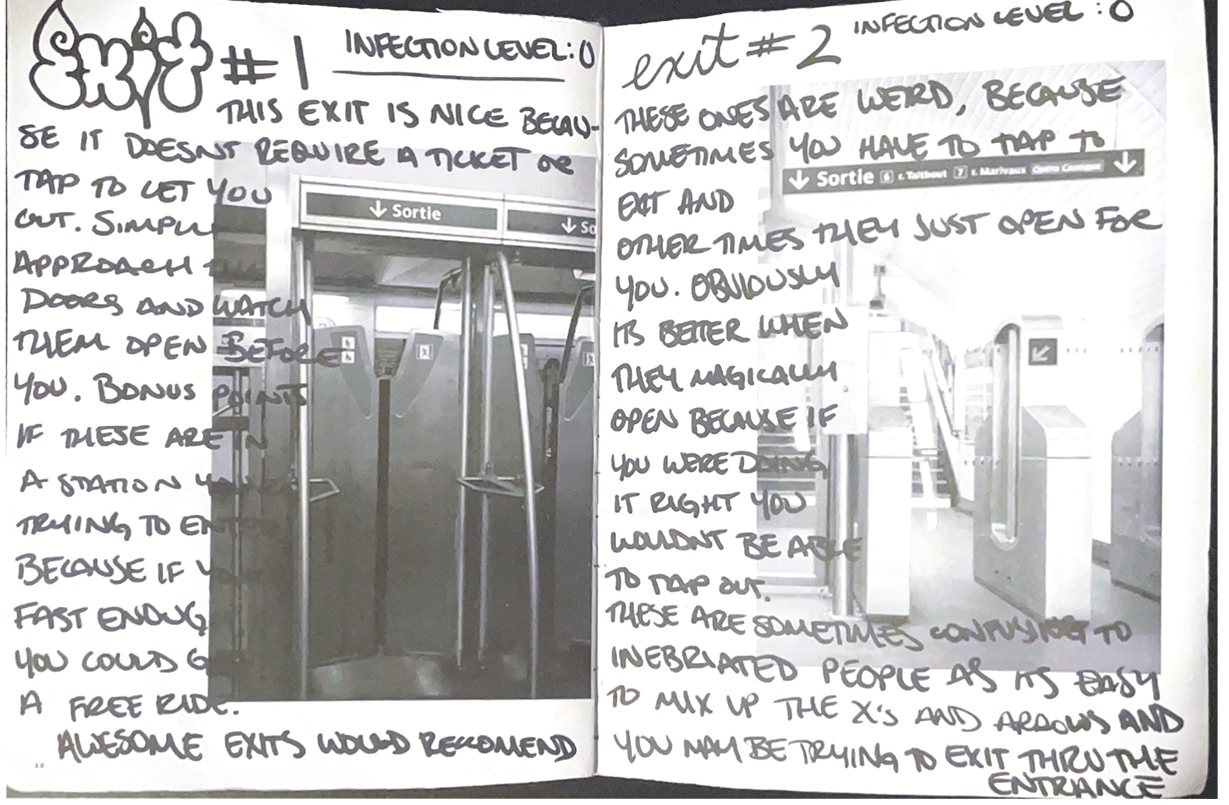 EXIT #1 INFECTION LEVEL: 0
THIS EXIT IS NICE BECAU-
SE IT DOESNT REQUIRE A TICKET OR
TAP TO LET YOU
OUT. SIMPLY
APPROACH THE
DOORS AND WATCH
THEM OPEN BEFORE
YOU. BONUS POINTS
IF THESE ARE IN
A STATION YOU'RE
TRYING TO ENTER
BECAUSE IF YOUR
FAST ENOUG
YOU COULD G
A FREE RIDE.
AWESOME EXITS WOULD RECCOMEND
↓ Sortie
↓ So
exit #2 INFECTION LEVEL: 0
THESE ONES ARE WEIRD, BECAUSE
SOMETIMES YOU HAVE TO TAP TO
EXIT AND
OTHER TIMES THEY JUST OPEN FOR
YOU. OBVIOUSLY
ITS BETTER WHEN
THEY MAGICALLY
OPEN BECAUSE IF
YOU WERE DOING
IT RIGHT YOU
WOULDNT BE ABLE
TO TAP OUT.
THESE ARE SOMETIMES CONFUSING TO
INEBRIATED PEOPLE AS ITS EASY
TO MIX UP THE X'S AND ARROWS AND
YOU MAY BE TRYING TO EXIT THRU THE
ENTRANCE
↓ Sortie 6 r. Taitbout 7 r. Marivaux Opéra Comique ↓